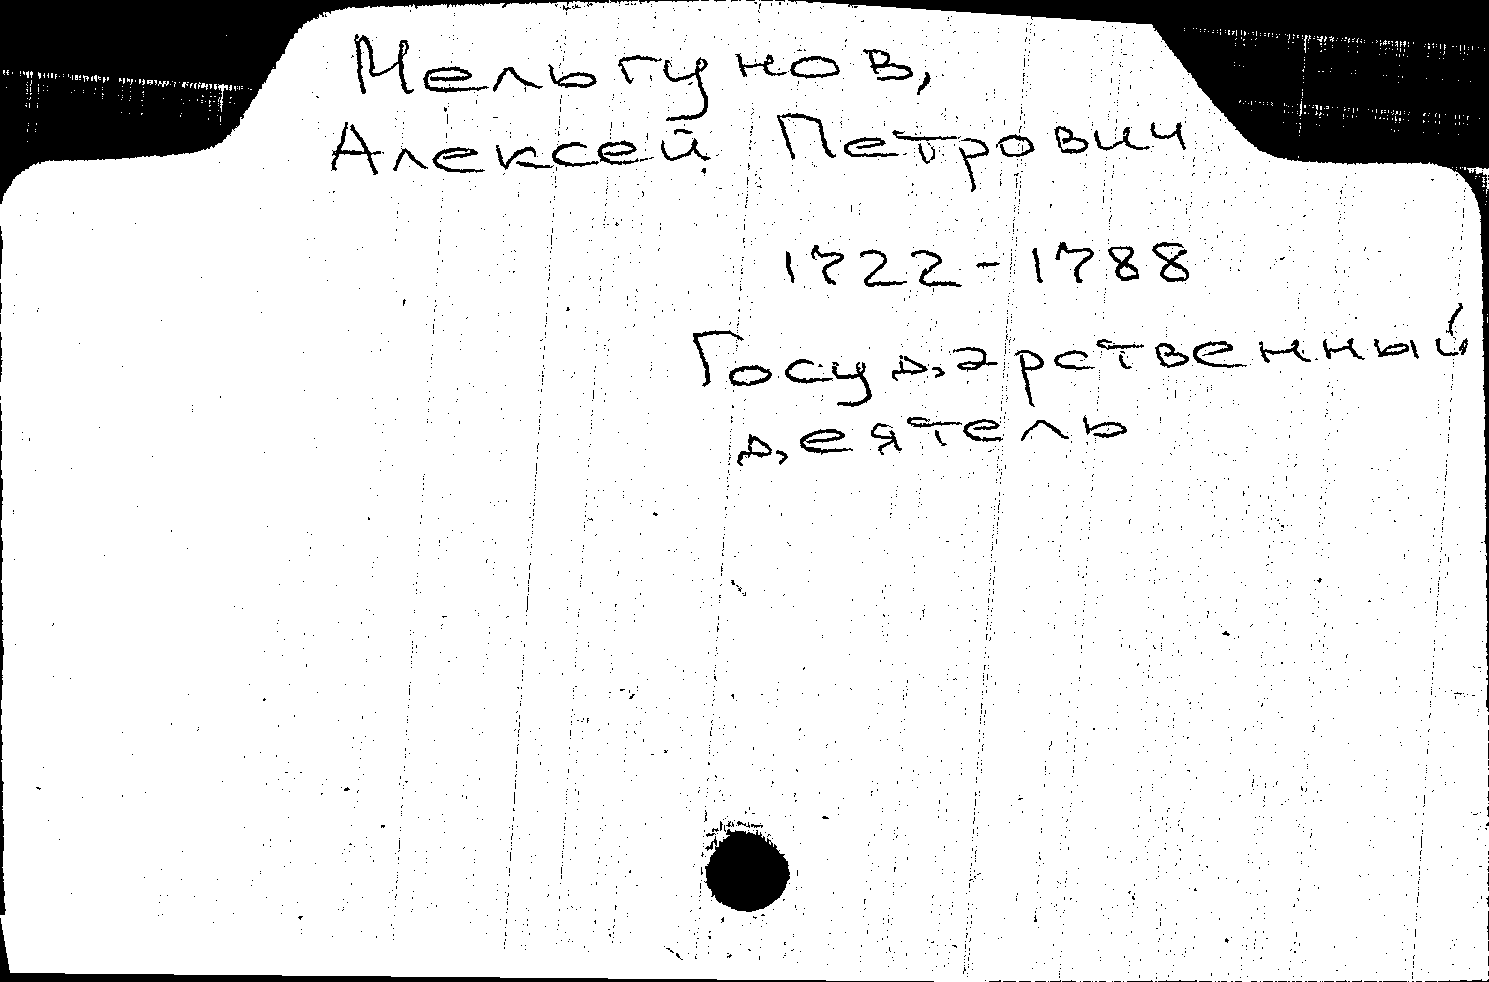 Мельгунов,
Алексей Петрович
1722-1788
Государственный
деятель